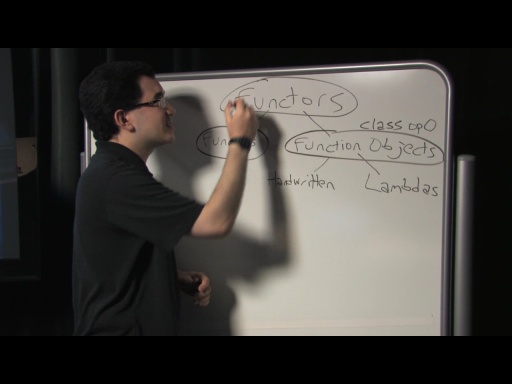 Functors
class op()
Function Objects
Handwritten
Lambdas